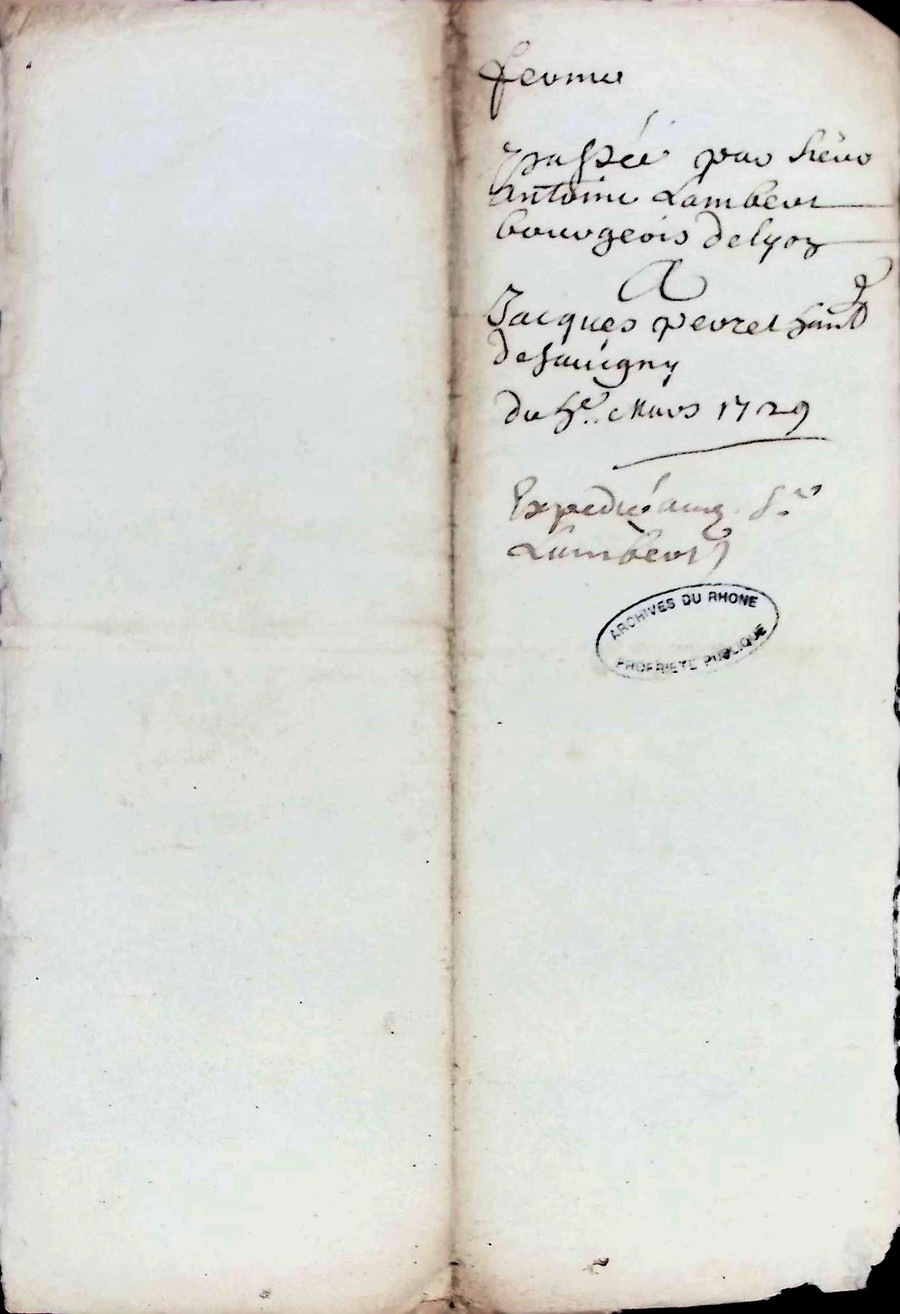 ferme
passée par sieur
Antoine Lambert
bourgeois de lyon
A
Jacques peuret
de Sauigny
du Mars 1729
Expedié aud. Sr
Lambert
ARCHIVES DU RHONE
PROPRIETE PUBLIQUE